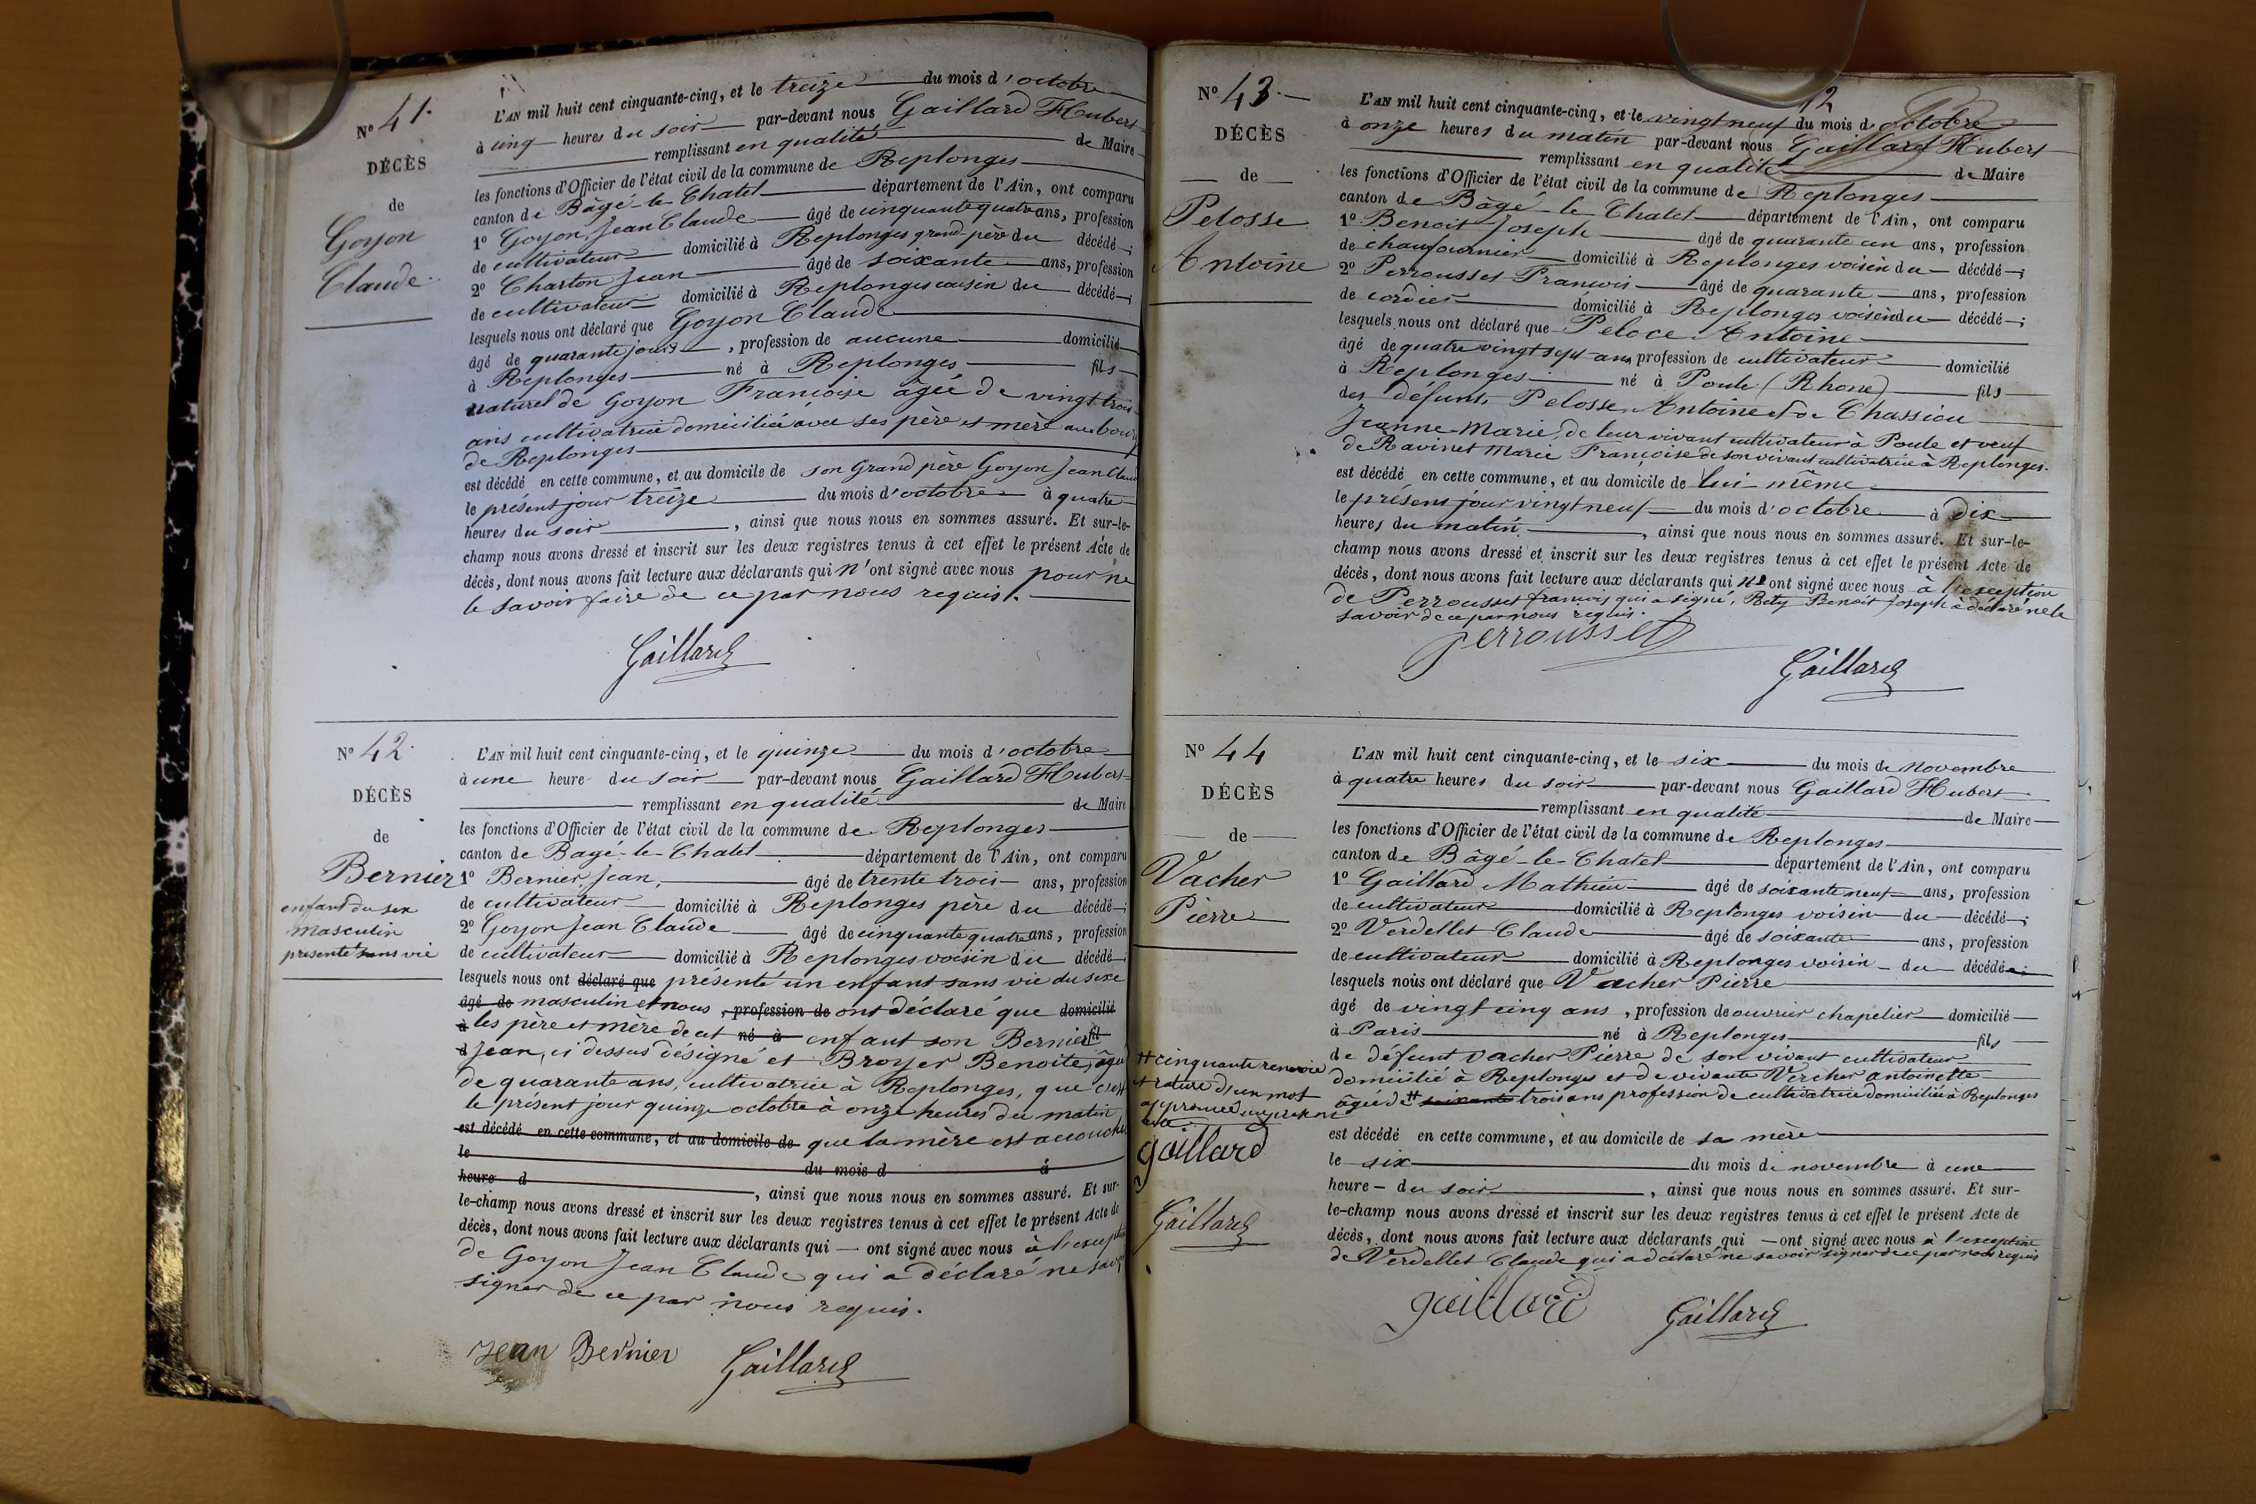 N° 41.
DÉCÈS
de
Goyon
Claude.
L'AN mil huit cent cinquante-cinq, et le treize du mois d'octobre
à cinq heures du soir par-devant nous Gaillard Hubert
remplissant en qualité de Maire
les fonctions d'Officier de l'état civil de la commune de Replonges
canton de Bâgé-le-Chatel département de l'Ain, ont comparu
1° Goyon, Jean Claude âgé de cinquante quatre ans, profession
de cultivateur domicilié à Replonges grand-père du décédé ;
2° Charton Jean âgé de soixante ans, profession
de cultivateur domicilié à Replonges voisin du décédé ;
lesquels nous ont déclaré que Goyon Claude
âgé de quarante jours , profession de aucune domicilié
à Replonges né à Replonges fils
naturel de Goyon Françoise âgée de vingt trois
ans cultivatrice domiciliée avec ses père et mère au bourg
de Replonges
est décédé en cette commune, et au domicile de son Grand père Goyon Jean Claude
le présent jour treize du mois d'octobre à quatre
heures du soir , ainsi que nous nous en sommes assuré. Et sur-le-
champ nous avons dressé et inscrit sur les deux registres tenus à cet effet le présent Acte de
décès, dont nous avons fait lecture aux déclarants qui n'ont signé avec nous pour ne
le savoir faire de ce par nous requis.
Gaillard
N° 42.
DÉCÈS
de
Bernier
enfant du sex
masculin
presenté sans vie
L'AN mil huit cent cinquante-cinq, et le quinze du mois d'octobre
à une heure du soir par-devant nous Gaillard Hubert
remplissant en qualité de Maire
les fonctions d'Officier de l'état civil de la commune de Replonges
canton de Bagé-le-Chatel département de l'Ain, ont comparu
1° Bernier, Jean, âgé de trente trois ans, profession
de cultivateur domicilié à Replonges père du décédé ;
2° Goyon Jean Claude âgé de cinquante quatre ans, profession
de cultivateur domicilié à Replonges voisin du décédé ;
lesquels nous ont déclaré que présenté un enfant sans vie du sexe
âgé de masculin et nous , profession de ont déclaré que domicilié
à les père et mère de cet né à enfant son Bernier fil
d Jean, ci dessus désigné et Broyer Benoite, âgée
de quarante ans, cultivatrice à Replonges, que c'est
le présent jour quinze octobre à onze heures du matin
est décédé en cette commune, et au domicile de que la mère est accouchée
le du mois d à
heure d , ainsi que nous nous en sommes assuré. Et sur-
le-champ nous avons dressé et inscrit sur les deux registres tenus à cet effet le présent Acte de
décès, dont nous avons fait lecture aux déclarants qui — ont signé avec nous à l'exception
de Goyon Jean Claude qui a déclaré ne savoir
signer de ce par nous requis.
Jean Bernier Gaillard
12
N° 43.
DÉCÈS
de
Pelosse
Antoine
L'AN mil huit cent cinquante-cinq, et le vingt neuf du mois d'octobre
à onze heures du matin par-devant nous Gaillard Hubert
remplissant en qualité de Maire
les fonctions d'Officier de l'état civil de la commune de Replonges
canton de Bâgé-le-Chatel département de l'Ain, ont comparu
1° Benoit Joseph âgé de quarante un ans, profession
de chaufournier domicilié à Replonges voisin du décédé ;
2° Perrousset François âgé de quarante ans, profession
de cordier domicilié à Replonges voisin du décédé ;
lesquels nous ont déclaré que Peloce Antoine
âgé de quatre vingt sept ans, profession de cultivateur domicilié
à Replonges né à Poule (Rhone) fils
des défunts Pelosse Antoine et de Chassieu
Jeanne-Marie, de leur vivant cultivateur à Poule et veuf
de Ravinet Marie Françoise de son vivant cultivatrice à Replonges.
est décédé en cette commune, et au domicile de lui-même
le présent jour vingt neuf du mois d'octobre à dix
heures du matin , ainsi que nous nous en sommes assuré. Et sur-le-
champ nous avons dressé et inscrit sur les deux registres tenus à cet effet le présent Acte de
décès, dont nous avons fait lecture aux déclarants qui ont signé avec nous à l'exception
de Perrousset françois qui a signé, Benoit Joseph a déclaré ne le
savoir de ce par nous requis.
perrousset
Gaillard
N° 44
DÉCÈS
de
Vacher
Pierre
L'AN mil huit cent cinquante-cinq, et le six du mois de novembre
à quatre heures du soir par-devant nous Gaillard Hubert
remplissant en qualité de Maire
les fonctions d'Officier de l'état civil de la commune de Replonges
canton de Bâgé-le-Chatel département de l'Ain, ont comparu
1° Gaillard Mathieu âgé de soixante neuf ans, profession
de cultivateur domicilié à Replonges voisin du décédé ;
2° Verdellet Claude âgé de soixante ans, profession
de cultivateur domicilié à Replonges voisin du décédé ;
lesquels nous ont déclaré que Vacher Pierre
âgé de vingt cinq ans , profession de ouvrier chapelier domicilié
à Paris né à Replonges fils
de défunt Vacher Pierre de son vivant cultivateur
domicilié à Replonges et de vivante Vercher antoinette
âgée de # soixante trois ans profession de cultivatrice domiciliée à Replonges
est décédé en cette commune, et au domicile de sa mère
le six du mois de novembre à une
heure du soir , ainsi que nous nous en sommes assuré. Et sur-
le-champ nous avons dressé et inscrit sur les deux registres tenus à cet effet le présent Acte de
décès, dont nous avons fait lecture aux déclarants qui — ont signé avec nous à l'exception
de Verdellet Claude qui a déclaré ne savoir signer de ce par nous requis
# cinquante renvoie
et rature d'un mot
approuvé
gaillard
Gaillard
gaillard Gaillard